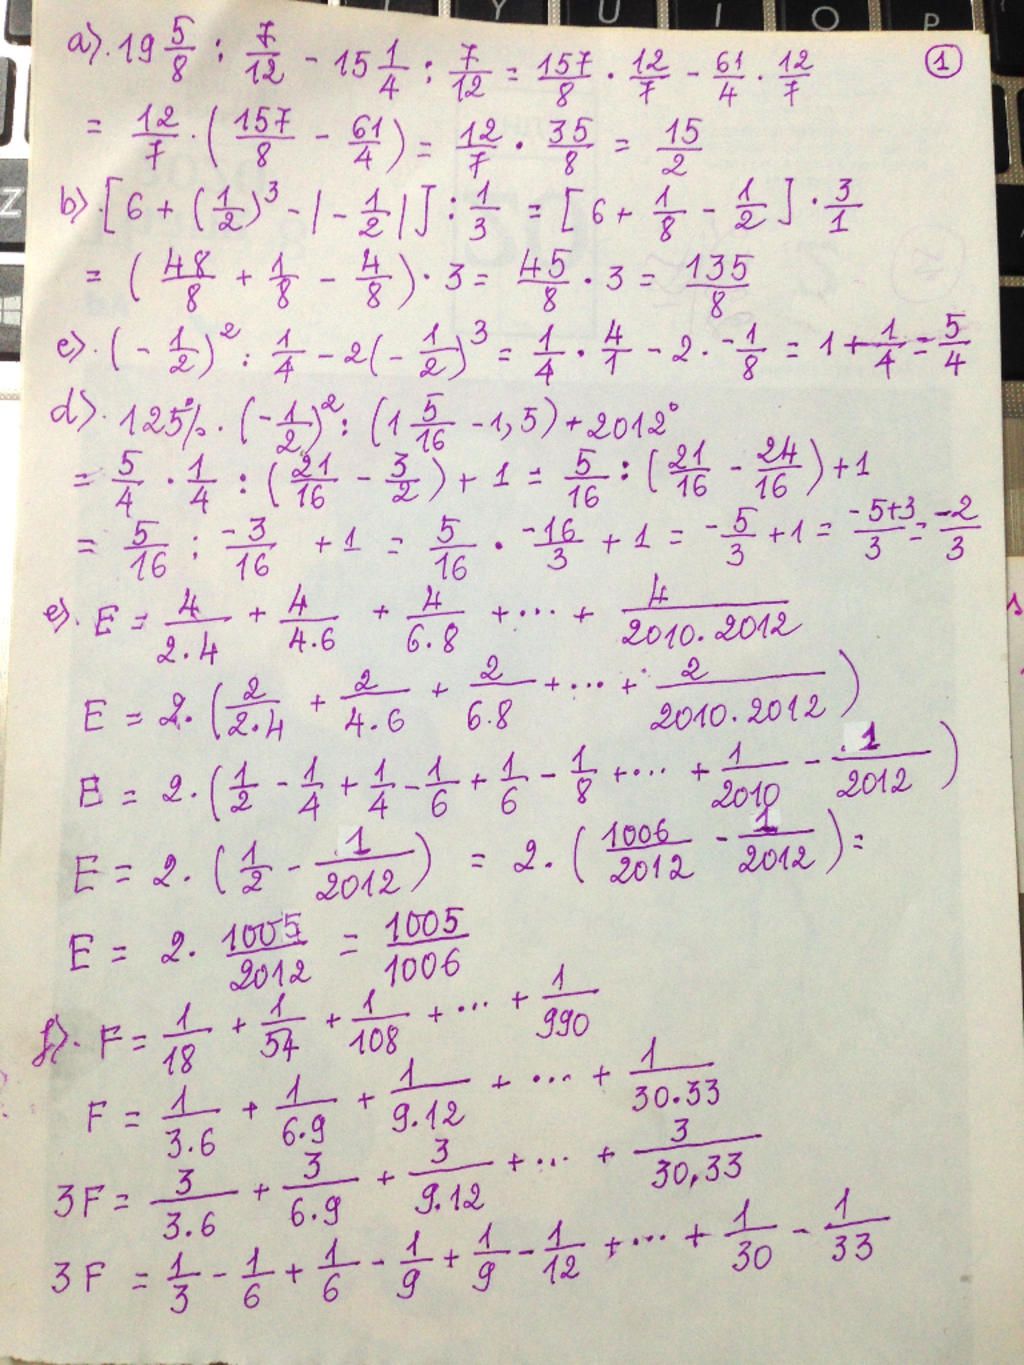 a). 19 5/8 : 7/12 - 15 1/4 : 7/12 = 157/8 . 12/7 - 61/4 . 12/7
1
= 12/7 . ( 157/8 - 61/4 ) = 12/7 . 35/8 = 15/2
b) . [ 6 + (1/2)³ - | - 1/2 | ] : 1/3 = [ 6 + 1/8 - 1/2 ] . 3/1
= ( 48/8 + 1/8 - 4/8 ) . 3 = 45/8 . 3 = 135/8
c) . ( - 1/2 )² : 1/4 - 2 ( - 1/2 )³ = 1/4 . 4/1 - 2 . -1/8 = 1 + 1/4 = 5/4
d) . 125% . ( - 1/2 )² : ( 1 5/16 - 1,5 ) + 2012⁰
= 5/4 . 1/4 : ( 21/16 - 3/2 ) + 1 = 5/16 : ( 21/16 - 24/16 ) + 1
= 5/16 : -3/16 + 1 = 5/16 . -16/3 + 1 = -5/3 + 1 = -5+3/3 = -2/3
e). E = 4/2.4 + 4/4.6 + 4/6.8 + ... + 4/2010.2012
E = 2. ( 2/2.4 + 2/4.6 + 2/6.8 + ... + 2/2010.2012 )
E = 2. ( 1/2 - 1/4 + 1/4 - 1/6 + 1/6 - 1/8 + ... + 1/2010 - 1/2012 )
E = 2. ( 1/2 - 1/2012 ) = 2. ( 1006/2012 - 1/2012 ) =
E = 2. 1005/2012 = 1005/1006
f). F = 1/18 + 1/54 + 1/108 + ... + 1/990
F = 1/3.6 + 1/6.9 + 1/9.12 + ... + 1/30.33
3F = 3/3.6 + 3/6.9 + 3/9.12 + ... + 3/30.33
3F = 1/3 - 1/6 + 1/6 - 1/9 + 1/9 - 1/12 + ... + 1/30 - 1/33